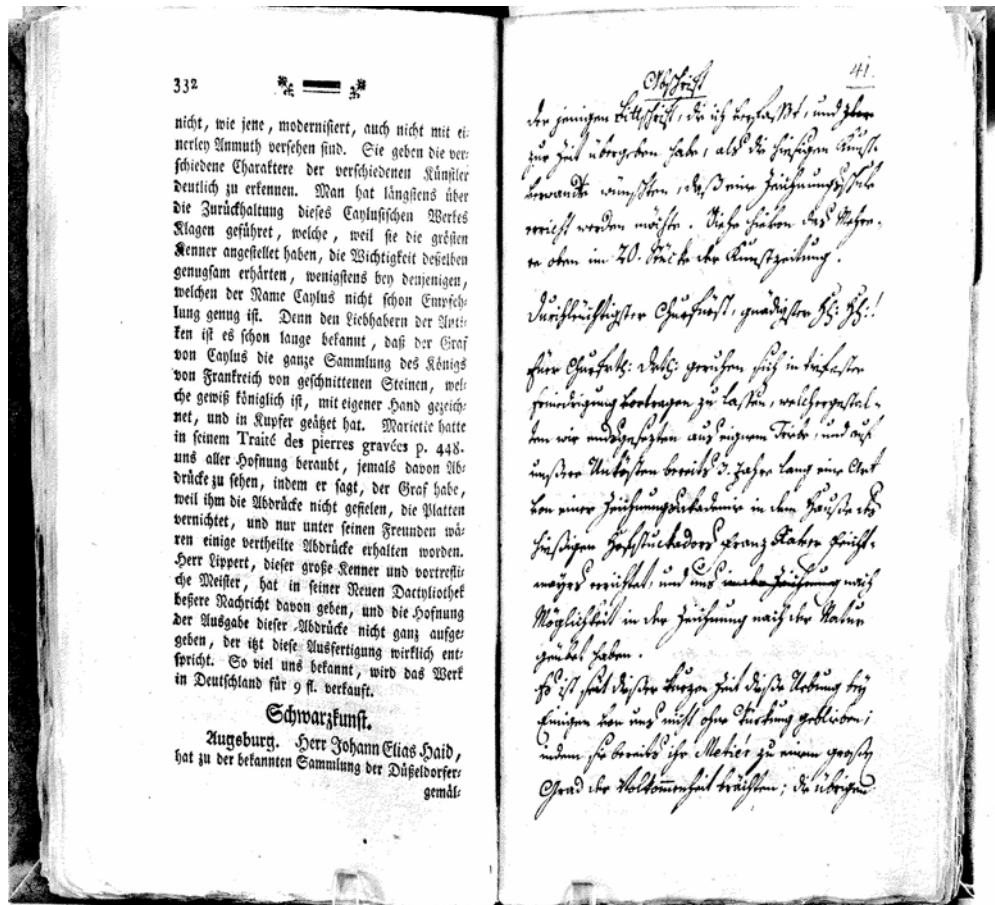 332
nicht, wie jene, modernisiert, auch nicht mit ei-
nerley Anmuth versehen sind. Sie geben die ver-
schiedene Charaktere der verschiedenen Künstler
deutlich zu erkennen. Man hat längstens über
die Zurückhaltung dieses Caylusischen Werkes
Klagen geführet, welche, weil sie die grösten
Kenner angestellet haben, die Wichtigkeit deßelben
genugsam erhärten, wenigstens bey denjenigen,
welchen der Name Caylus nicht schon Empfeh-
lung genug ist. Denn den Liebhabern der Anti-
ken ist es schon lange bekannt, daß der Graf
von Caylus die ganze Sammlung des Königs
von Frankreich von geschnittenen Steinen, wel-
che gewiß königlich ist, mit eigener Hand gezeich-
net, und in Kupfer geätzet hat. Marietie hatte
in seinem Traité des pierres gravées p. 448.
uns aller Hofnung beraubt, jemals davon Ab-
drücke zu sehen, indem er sagt, der Graf habe,
weil ihm die Abdrücke nicht gefielen, die Platten
vernichtet, und nur unter seinen Freunden wä-
ren einige vertheilte Abdrücke erhalten worden.
Herr Lippert, dieser große Kenner und vortrefli-
che Meister, hat in seiner Neuen Dactyliothek
beßere Nachricht davon geben, und die Hofnung
der Ausgabe dieser Abdrücke nicht ganz aufge-
geben, der itzt diese Ausfertigung wirklich ent-
spricht. So viel uns bekannt, wird das Werk
in Deutschland für 9 fl. verkauft.
Schwarzkunst.
Augsburg. Herr Johann Elias Haid,
hat zu der bekannten Sammlung der Düßeldorfer-
gemäl-
41.
Abschrift
der jenigen Bittschrift, die ich verfasst, und
zur Zeit übergeben habe, als die hiesigen Kunst-
verwandte wünschten, daß eine Zeichnungsschule
erricht werden möchte. Siehe hievon das Mehre-
re oben im 20. Stücke der Kunstzeitung.
Durchleuchtigster Churfürst, gnädigster
Euer Churfrtl: Drtl: geruhen sich in tiefester
Erniedrigung vortragen zu lassen, welchergestal-
ten wir endsgesezten aus eignem Triebe, und auf
unsere Unkösten bereits 3. Jahre lang eine Art
von einer Zeichnungsakademie in dem Hauße des
hießigen Hofstuckadors Franz Xaver Feicht-
mayrs errichtet, und uns nach
Möglichkeit in der Zeichnung nach der Natur
geübet haben.
Es ist seit dießer kurzen Zeit dieße Uebung bey
Einigen von uns nicht ohne Wirkung geblieben;
indem sie bereits ihr Metiér zu einem großen
Grad der Vollkommenheit brächten; die übrigen